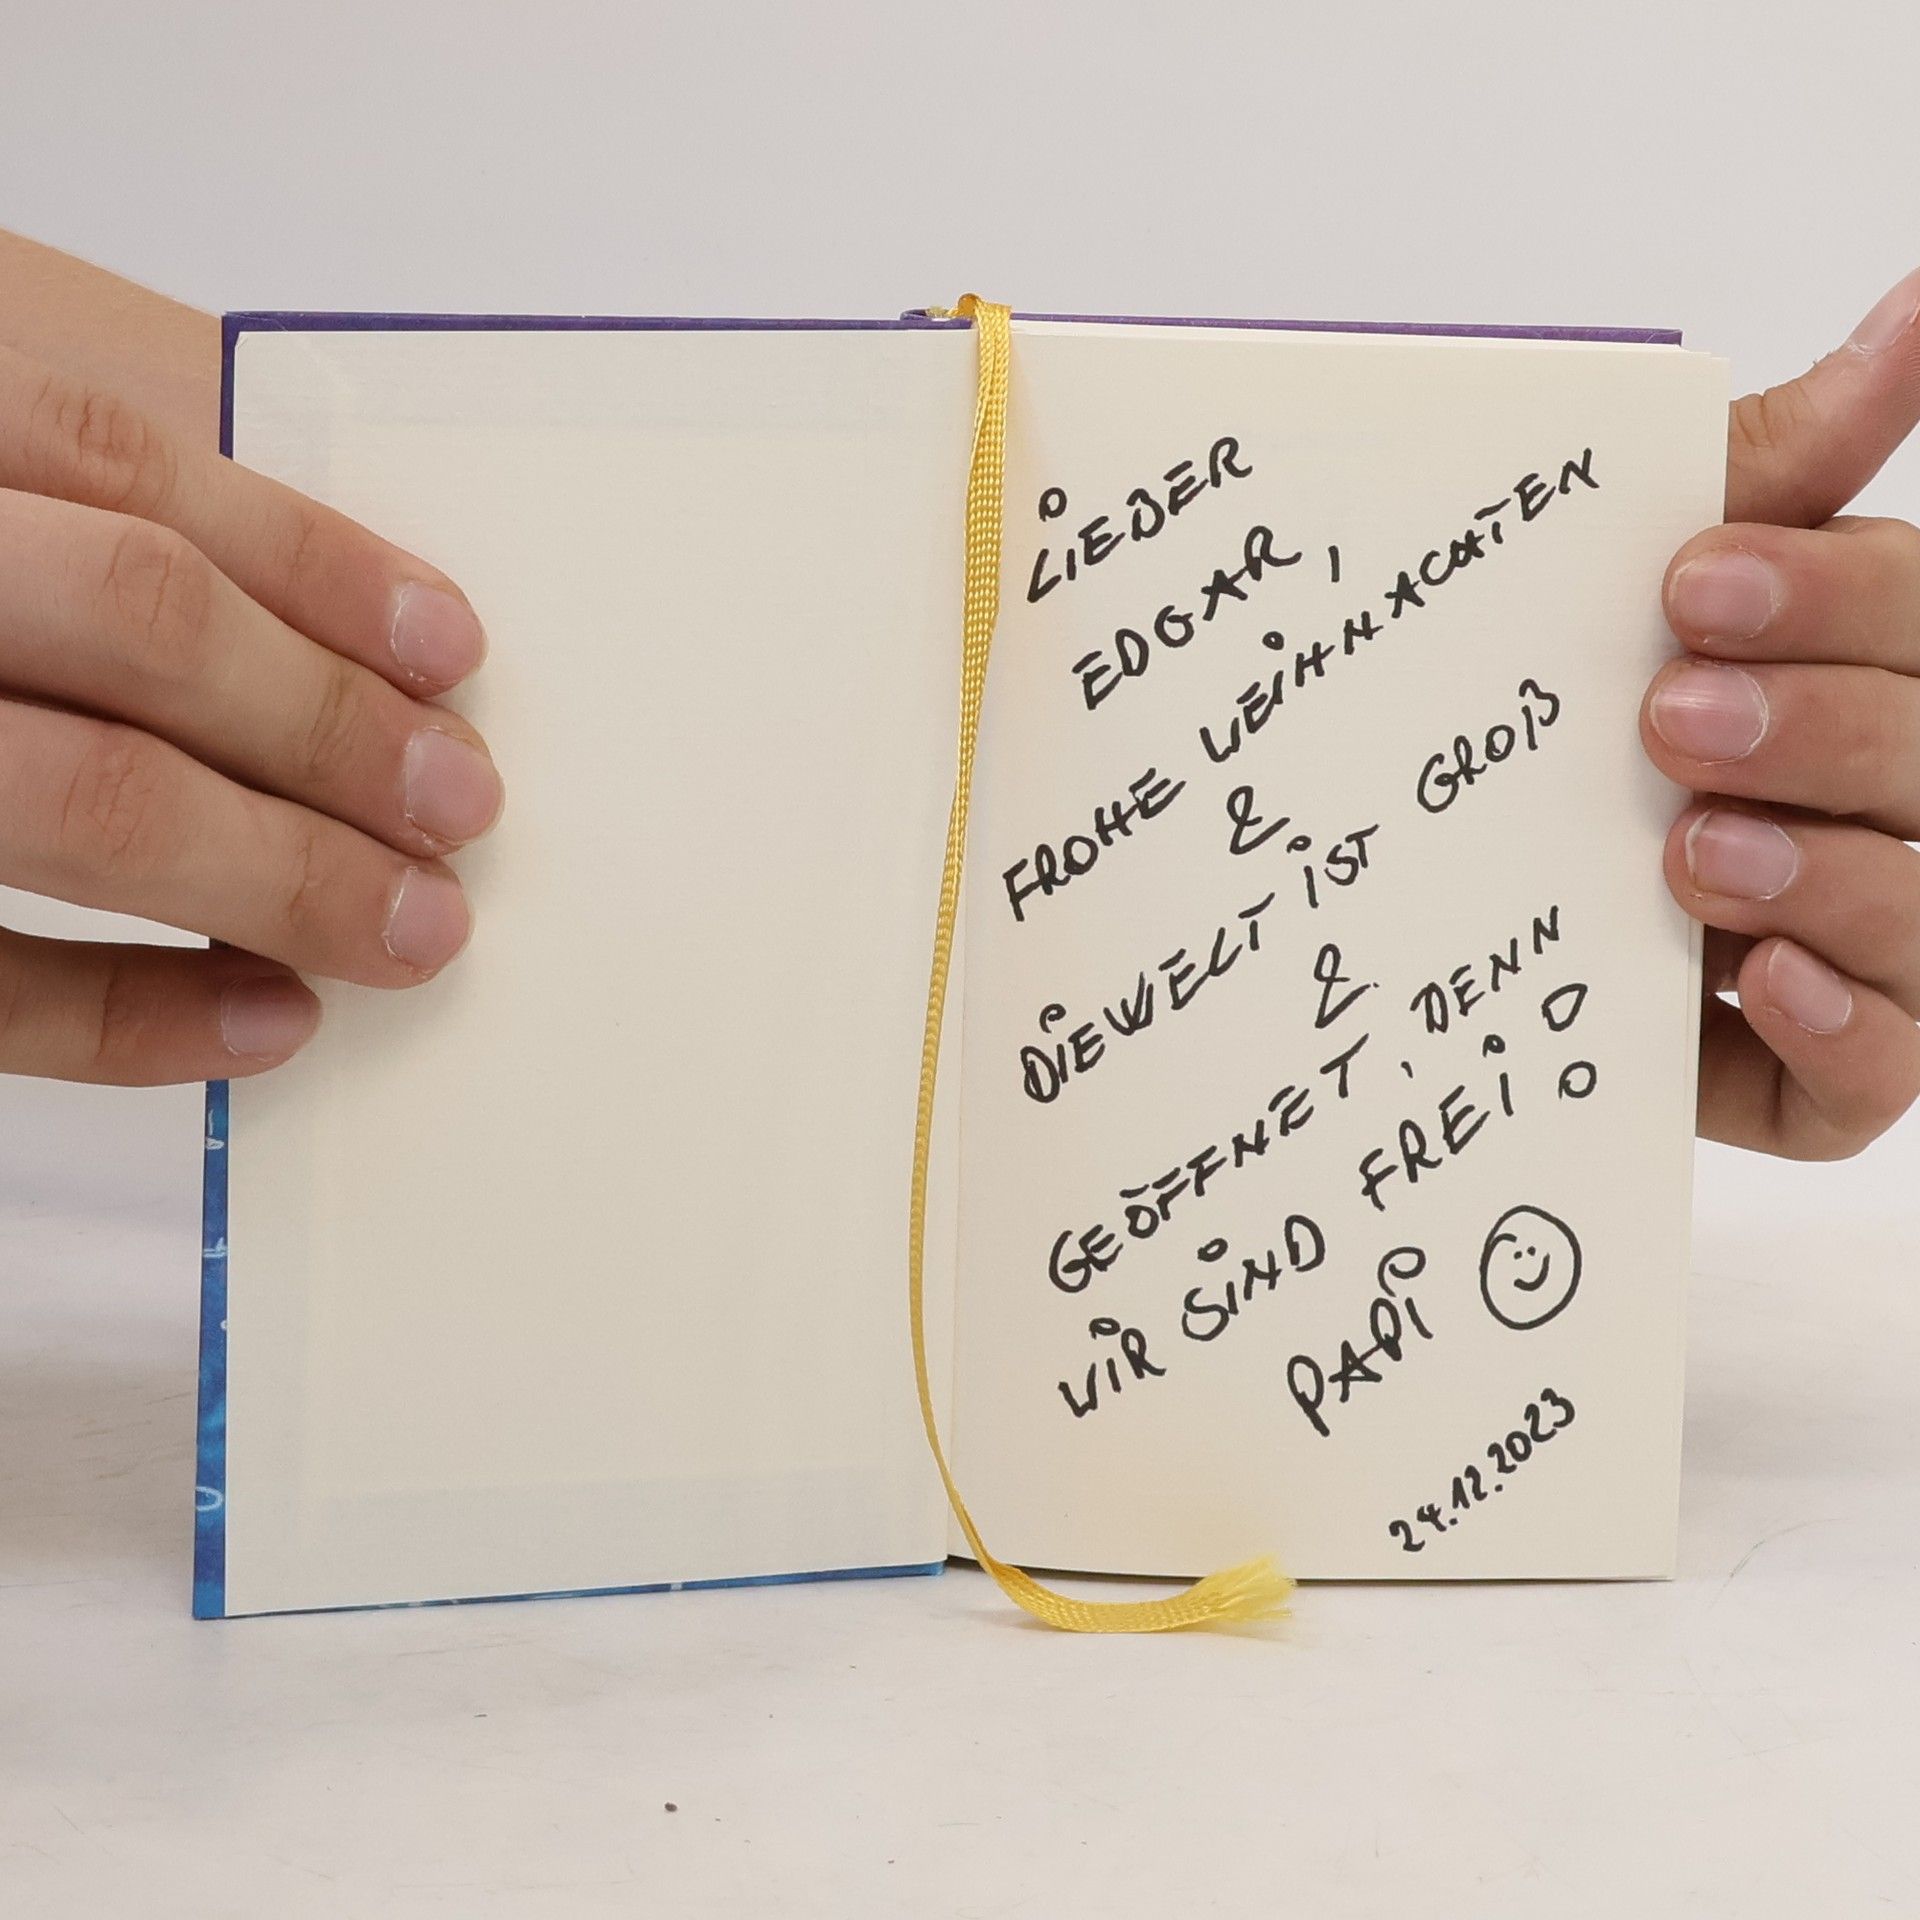 LIEBER
EDGAR,
FROHE WEIHNACHTEN
&
DIE WELT IST GROß
&
GEÖFFNET, DENN
WIR SIND FREI!
PAPI
24.12.2023